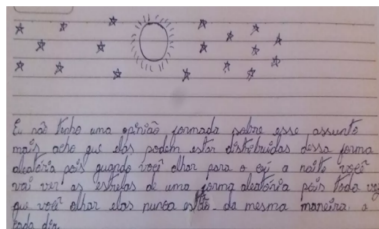 Eu não tenho uma opinião formada sobre esse assunto
mais acho que elas podem estar distribuidas dessa forma
aleatória pois quando você olhar para o céu a noite você
vai ver as estrelas de uma forma aleatória pois toda vez
que você olhar elas nunca estão da mesma maneira
todo dia.